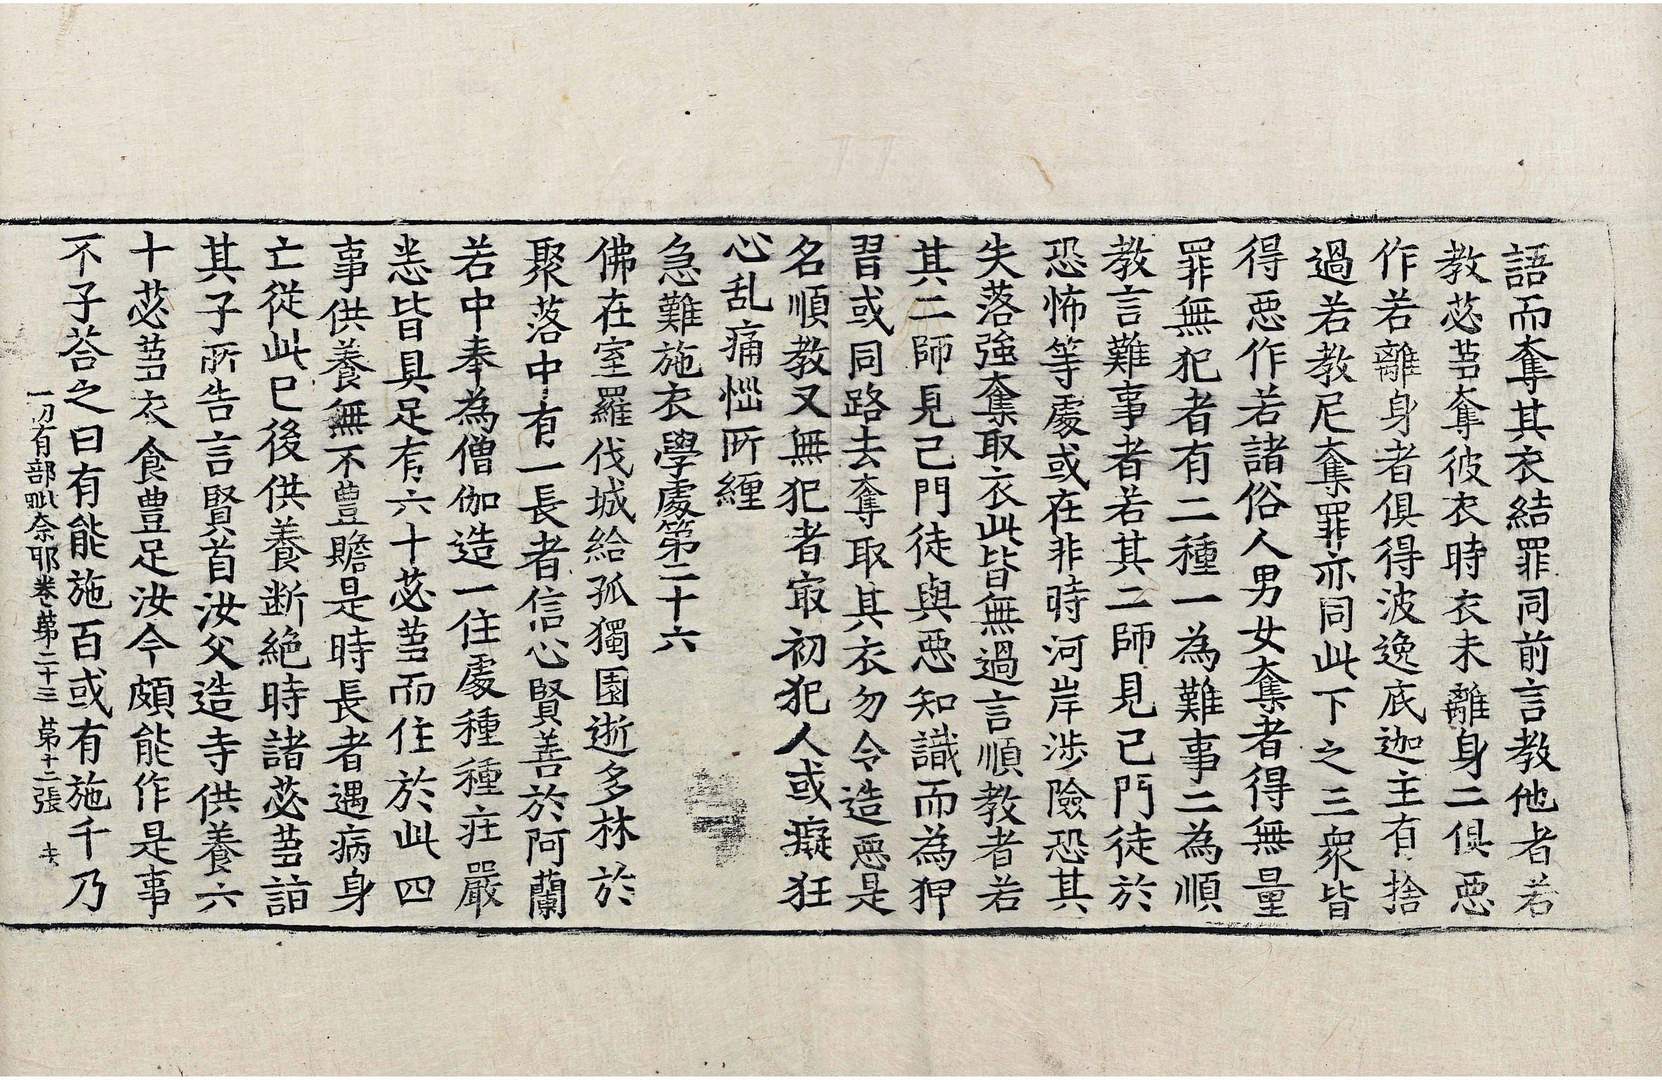 語而奪其衣結罪同前言教他者若
教苾芻奪彼衣時衣未離身二俱惡
作若離身者俱得波逸底迦主有捨
過若教尼奪罪亦同此下之三衆皆
得惡作若諸俗人男女奪者得無量
罪無犯者有二種一為難事二為順
教言難事者若其二師見己門徒於
恐怖等處或在非時河岸涉險恐其
失落強奪取衣此皆無過言順教者若
其二師見己門徒與惡知識而為狎
習或同路去奪取其衣勿令造惡是
名順教又無犯者㝡初犯人或癡狂
心乱痛惱所纏
急難施衣學處第二十六
佛在室羅伐城給孤獨園逝多林於
聚落中有一長者信心賢善於阿蘭
若中奉為僧伽造一住處種種莊嚴
悉皆具足有六十苾芻而住於此四
事供養無不豊贍是時長者遇病身
亡從此已後供養断絶時諸苾芻詣
其子所告言賢首汝父造寺供養六
十苾芻衣食豊足汝今頗能作是事
不子荅之曰有能施百或有施千乃
一切有部毗奈耶卷第二十三 第十二張 去